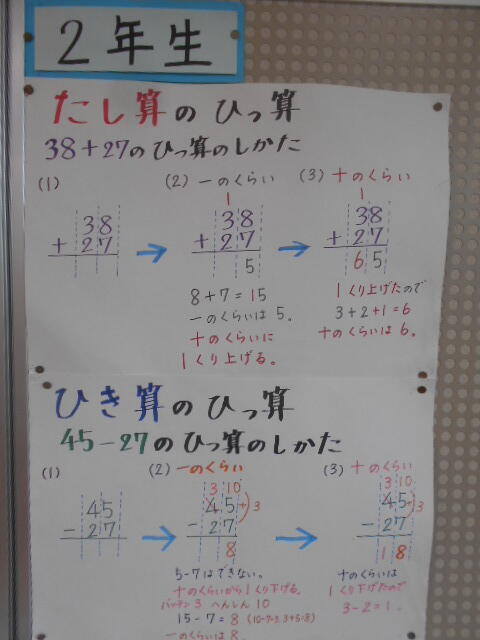 2年生
たし算のひっ算
38+27のひっ算のしかた
(1)
38
+27
(2) 一のくらい
1
38
+27
5
8+7=15
一のくらいは 5。
十のくらいに
1くり上げる。
(3) 十のくらい
1
38
+27
65
1くり上げたので
3+2+1=6
十のくらいは 6。
ひき算のひっ算
45-27のひっ算のしかた
(1)
45
-27
(2) 一のくらい
3 10
45
+3
-27
8
5-7はできない。
十のくらいから1くり下げる。
バッテン 3 へんしん 10
15-7=8 (10-7=3, 3+5=8)
一のくらいは 8。
(3) 十のくらい
3 10
45
+3
-27
18
十のくらいは
1くり下げたので
3-2=1。